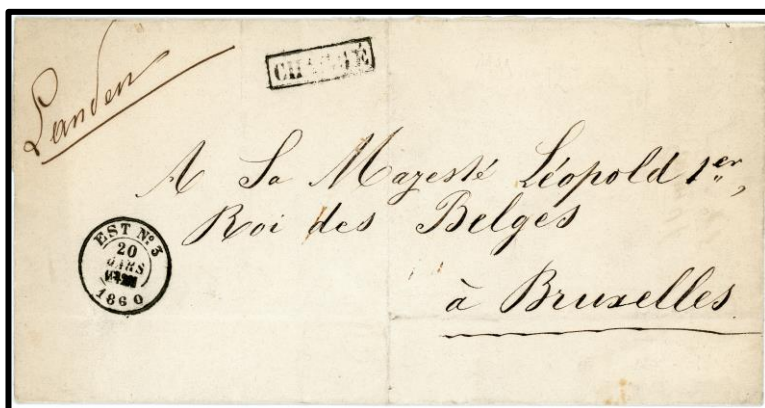 Landen
CHARGÉ
A Sa Majesté Léopold 1er,
Roi des Belges
à Bruxelles
EST No. 3
20
MARS
1860